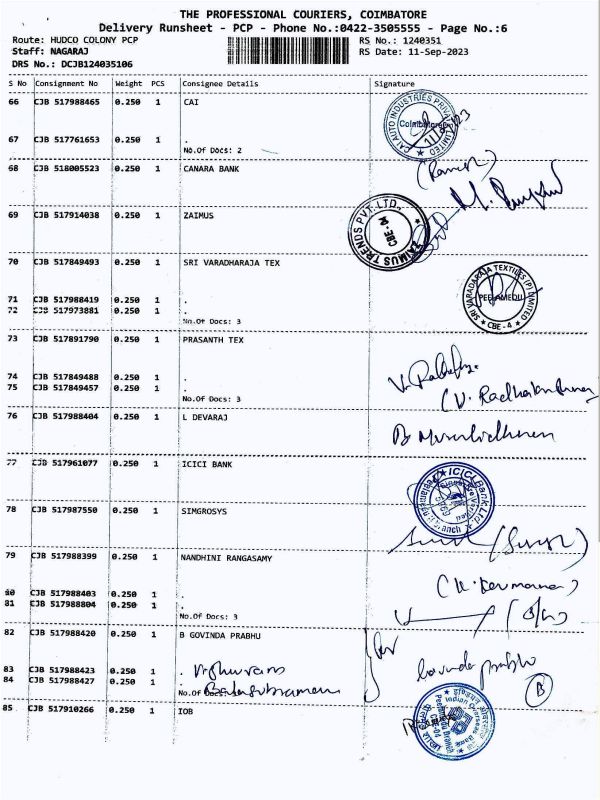 THE PROFESSIONAL COURIERS, COIMBATORE
Delivery Runsheet - PCP - Phone No.:0422-3505555 - Page No.:6
Route: HUDCO COLONY PCP RS No.: 1240351
Staff: NAGARAJ RS Date: 11-Sep-2023
DRS No.: DCJB124035106
S No Consignment No Weight PCS Consignee Details Signature
66 CJB 517988465 0.250 1 CAI
CAI AUTO INDUSTRIES PRIVATE LIMITED
Coimbatore
67 CJB 517761653 0.250 1 .
No.Of Docs: 2
68 CJB 518005523 0.250 1 CANARA BANK
69 CJB 517914038 0.250 1 ZAIMUS
ZAIMUS TRENDS PVT.LTD.
CBE-14
70 CJB 517849493 0.250 1 SRI VARADHARAJA TEX
SRI VARADARAJA TEXTILES (P) LIMITED
PEELAMEDU
CBE-4
71 CJB 517988419 0.250 1 .
72 CJB 517973881 0.250 1 .
No.Of Docs: 3
73 CJB 517891790 0.250 1 PRASANTH TEX
74 CJB 517849488 0.250 1 .
75 CJB 517849457 0.250 1 .
No.Of Docs: 3
76 CJB 517988404 0.250 1 L DEVARAJ
77 CJB 517961077 0.250 1 ICICI BANK
ICICI Bank Ltd.
Branch
78 CJB 517987550 0.250 1 SIMGROSYS
79 CJB 517988399 0.250 1 NANDHINI RANGASAMY
80 CJB 517988403 0.250 1 .
81 CJB 517988804 0.250 1 .
No.Of Docs: 3
82 CJB 517988420 0.250 1 B GOVINDA PRABHU
Govinda prabhu
83 CJB 517988423 0.250 1 .
84 CJB 517988427 0.250 1
No.Of Docs:
Balasubramani
B
85 CJB 517910266 0.250 1 IOB
Indian Overseas Bank